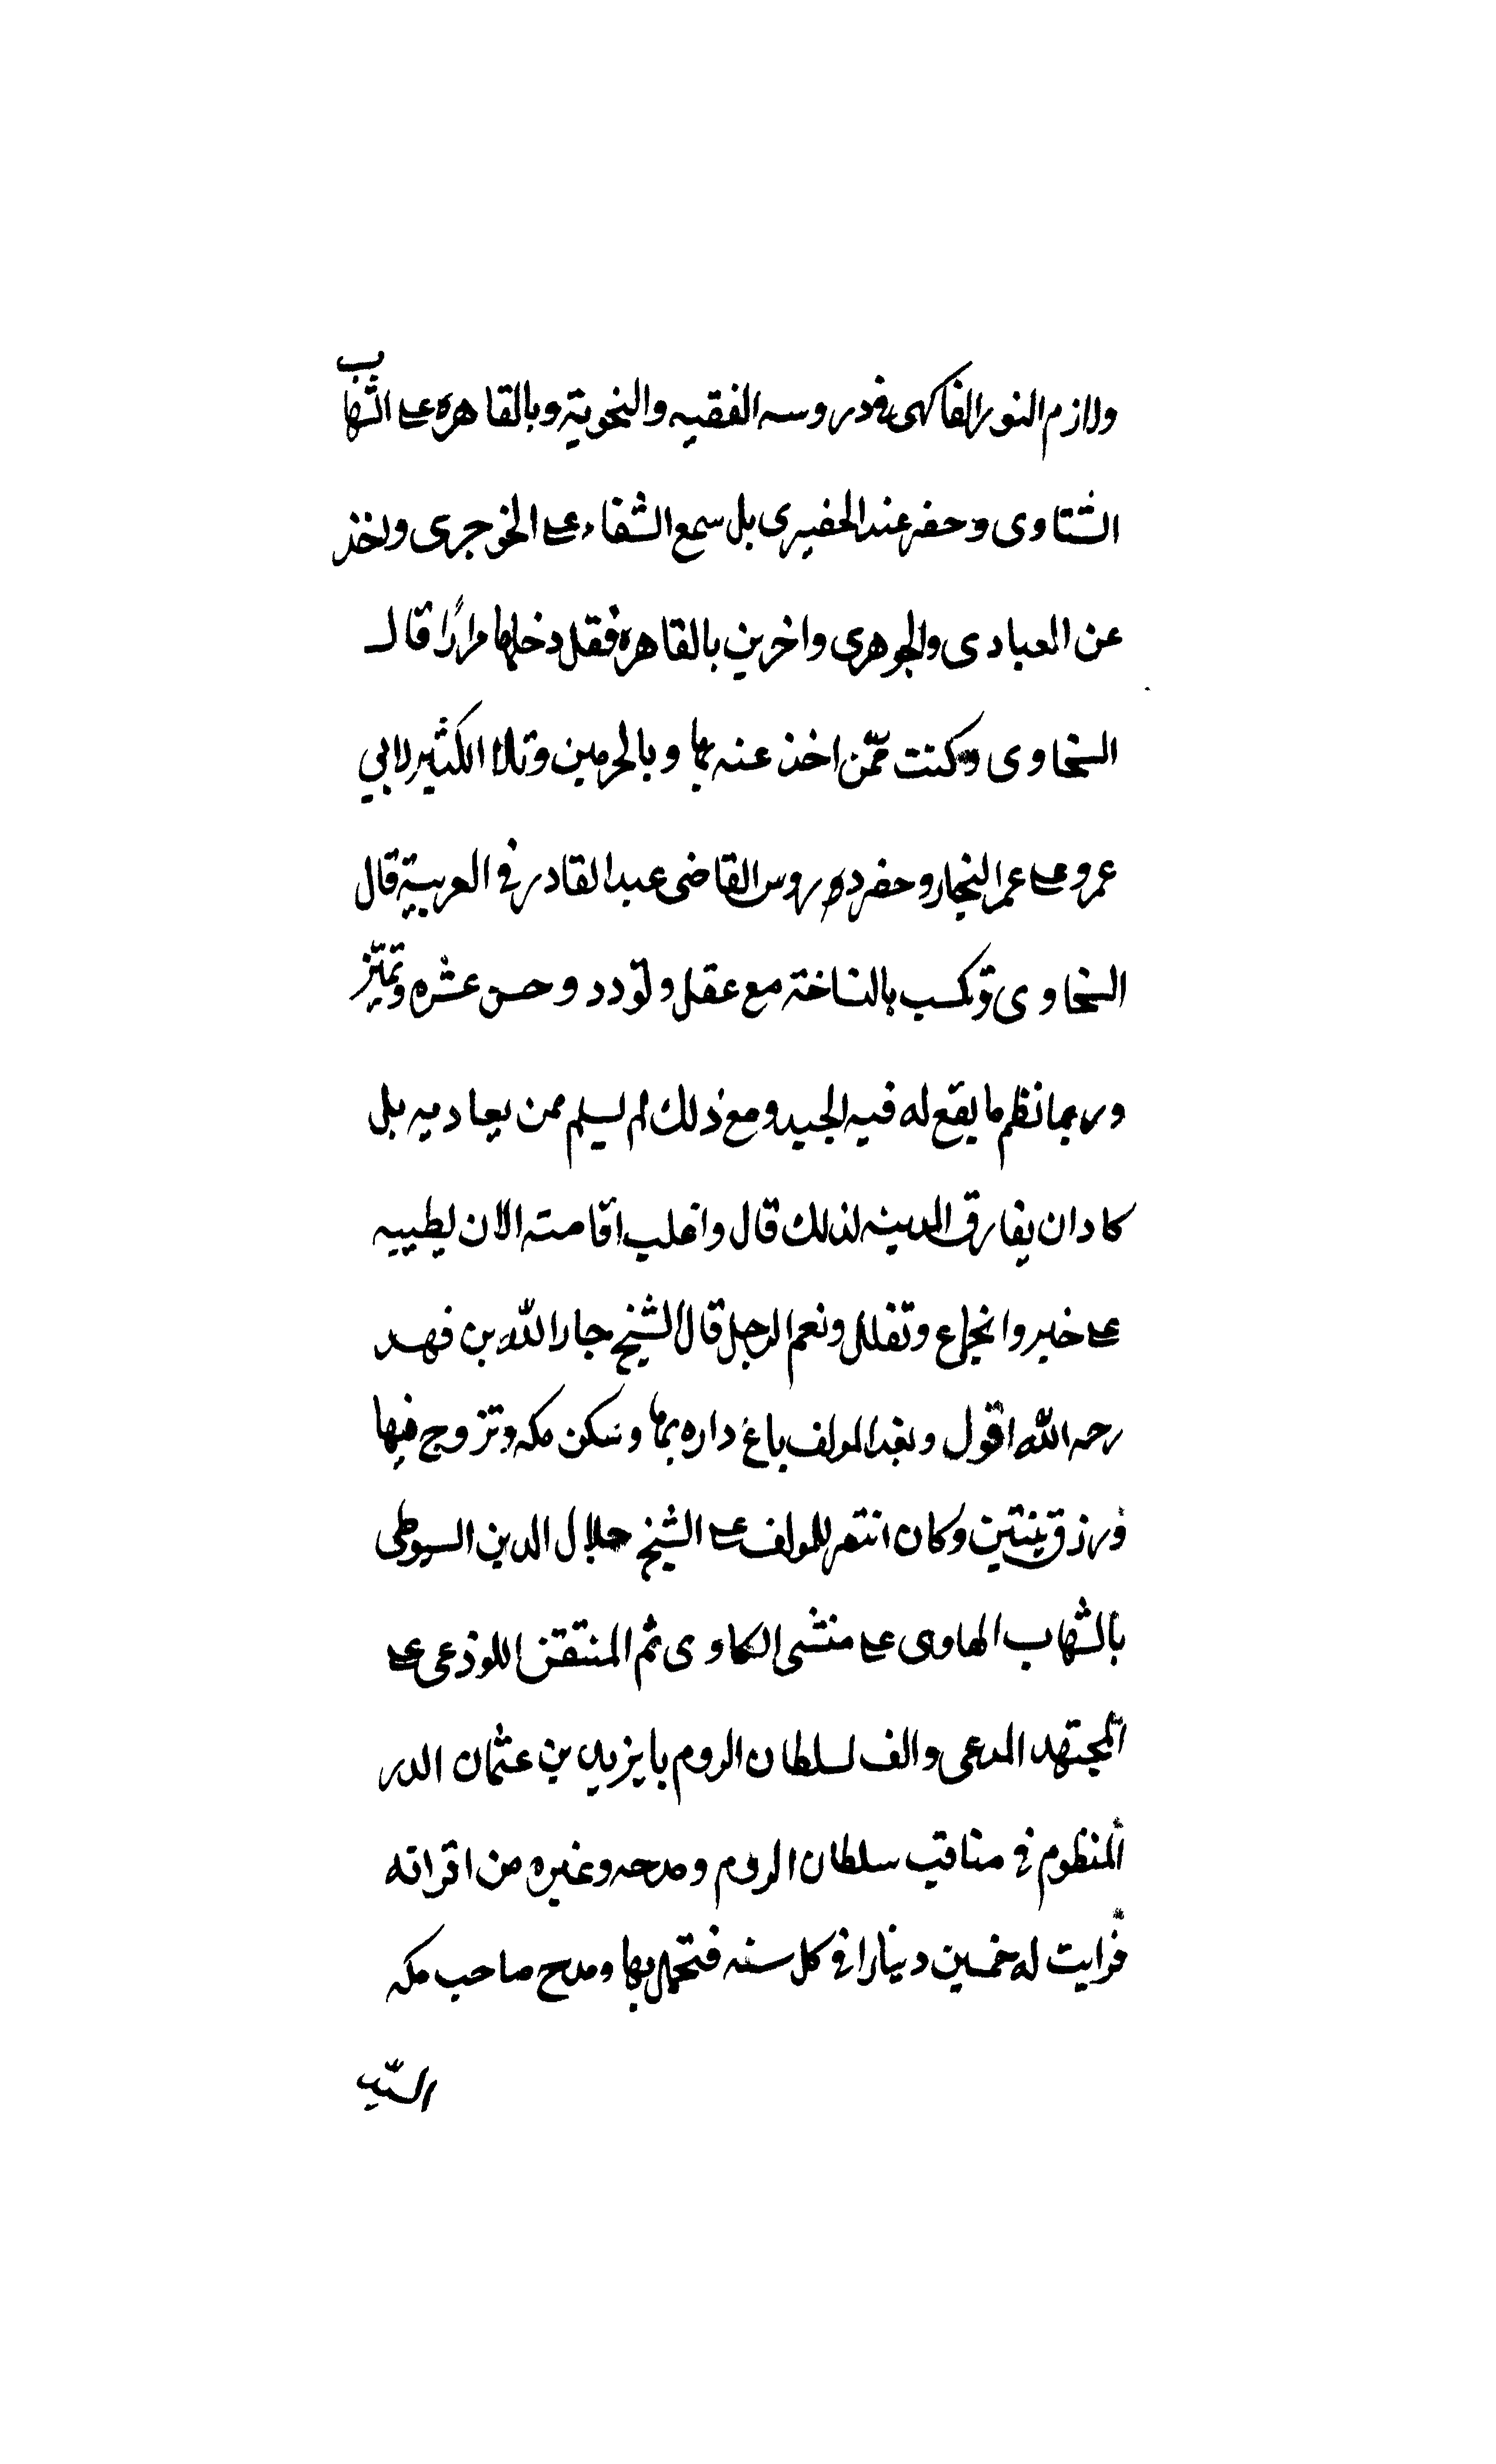 ولازم النور الفاكهى فى دروسه الفقيه والنحوية وبالقاهره على الشهاب
الشتاوى وحضر عند الحضيرى بل سمع الشفاء على الخوجرى ولخذ
عن العبادى والجوهرى واخرين بالقاهرة فقل دخلها مرارًا قال
السخاوى وكنت ممّن اخذ عنه بها وبالحرمين وتلا الكثير لابي
عمرو على عمر النجار وحضر دروس القاضى عبد القادر فى العربية قال
السخاوى تو كسب بالنساخة مع عقل وتودد وحسن عشره وتميّز
وربما نظم ما يقع له فيه الجيد ومع ذلك لم يسلم ممن يعاديه بل
كاد ان يفارق المدينه لذلك قال واغلب اقامته الان بطيبه
على خير وانجماع وتقلل ونعم الرجل قال الشيخ جار الله بن فهد
رحمه الله اقول وبعد المولف باع داره بها وسكن مكه وتزوج فيها
ورزق بنتين وكان انتصر للمولف على الشيخ جلال الدين السيوطى
بالشهاب الهاوى على منشى الكاوى ثم المنتقن اللوذعى على
المجتهد المدعى والف لسلطان الروم بايزيد بن عثمان الدر
المنظوم فى مناقب سلطان الروم ومدحه وغيره من اقرانه
فرايت له خمسين دينارا فى كل سنه فتجمل بها ومدح صاحب مكه
السّيد